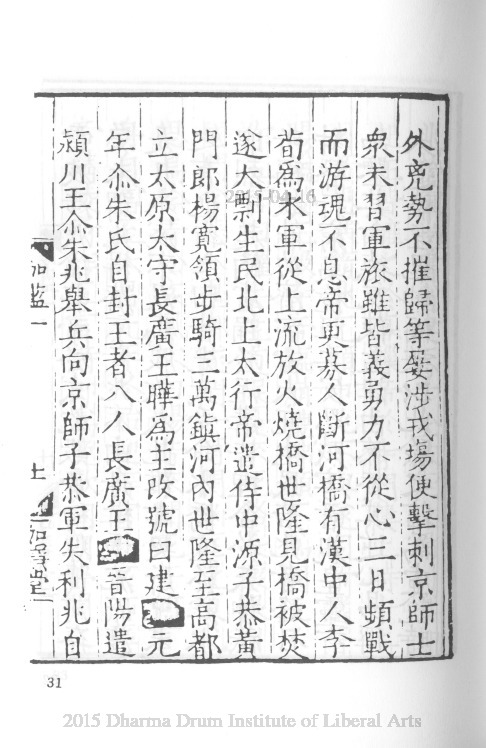 外兇勢不摧歸等屡涉戎場便擊刺京師士
衆未習軍旅雖皆義勇力不從心三日頻戰
而游魂不息帝更募人斷河橋有漢中人李
荀為水軍從上流放火燒橋世隆見橋被焚
遂大剽生民北上太行帝遣侍中源子恭黃
門郎楊寛領步騎三萬鎮河內世隆至高都
立太原太守長廣王曄為主改號曰建元
年尒朱氏自封王者八人長廣王晉陽遣
潁川王尒朱兆舉兵向京師子恭軍失利兆自
伽藍一
如隱堂
31
2015-04-16
2015 Dharma Drum Institute of Liberal Arts